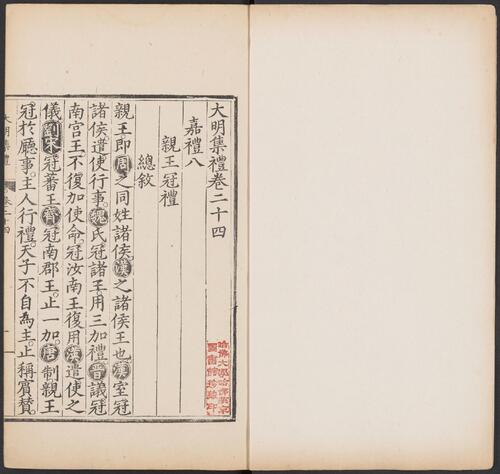 大明集禮卷二十四
嘉禮八
親王冠禮
總敘
親王即周之同姓諸侯漢之諸侯王也漢室冠
諸侯遣使行事。魏氏冠諸王。用三加禮晉議冠
南宫王不復加使命。冠汝南王復用漢遣使之
儀劉宋冠蕃王。齊冠南郡王。止一加。唐制親王
冠於廳事。主人行禮。天子不自為主。止稱賓贊。
大明集禮 卷二十四 一
哈佛大學哈佛燕京
圖書館珍藏印